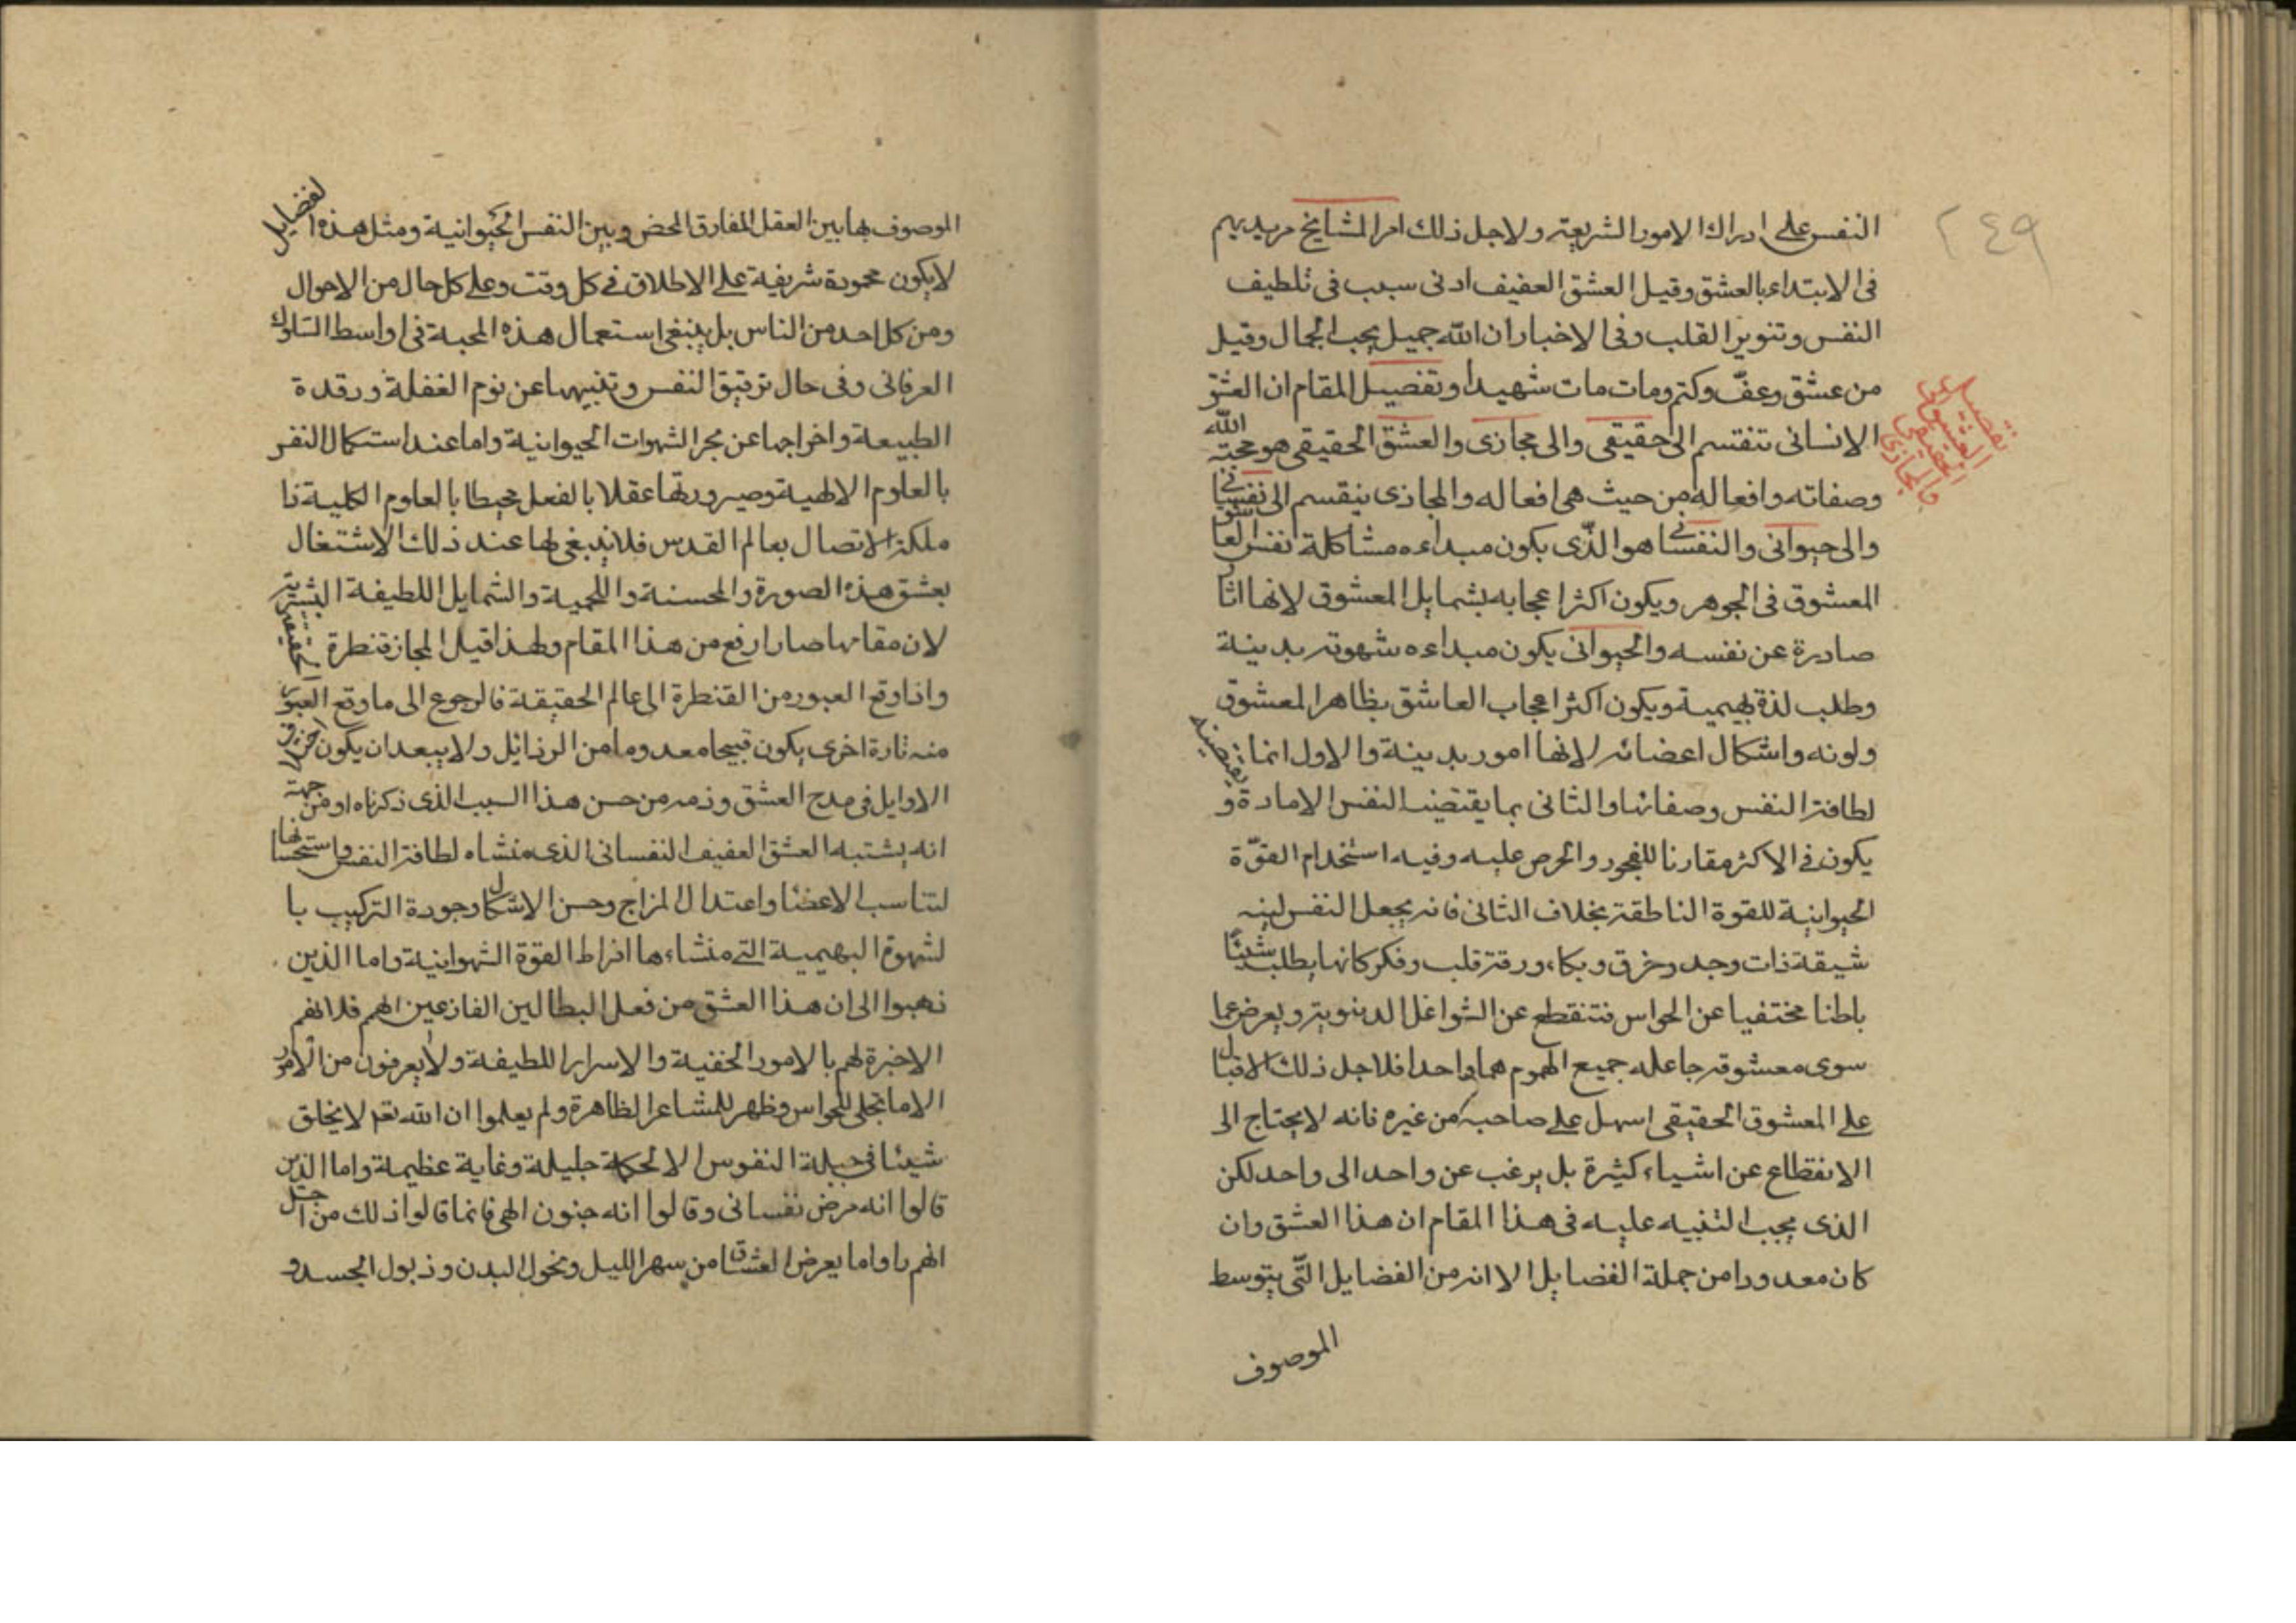 ٢٤٩
النفس على ادراك الامور الشريعة ولاجل ذلك امر المشايخ مريديهم
فى الابتداء بالعشق وقيل العشق العفيف ادنى سبب فى تلطيف
النفس وتنوير القلب وفى الاخبار ان الله جميل يحب الجمال وقيل
من عشق وعفّ وكتم ومات مات شهيدا وتفصيل المقام ان العشق
الانسانى تنقسم الى حقيقى والى مجازى والعشق الحقيقى هو محبة الله
وصفاته وافعاله من حيث هى افعاله والمجازى ينقسم الى نفسانى
والى حيوانى والنفسانى هو الذّى يكون مبداءه مشاكلة نفس العاشق
المعشوق فى الجوهر ويكون اكثر اعجابه بشمايل المعشوق لانها اثار
صادرة عن نفسه والحيوانى يكون مبداءه شهوة بدنية
وطلب لذة بهيمية ويكون اكثر اعجاب العاشق بظاهر المعشوق
ولونه واشكال اعضائه لانها امور بدنية والاول انما يقتضيه
لطافة النفس وصفائها والثانى بما يقتضيه النفس الامارة و
يكون فى الاكثر مقارنا للفجور والحرص عليه وفيه استخدام القوّة
الحيوانية للقوة الناطقة بخلاف الثانى فانه يجعل النفس لينه
شيقة ذات وجد وخرق وبكاء ورقة قلب وفكر كانها يطلب شيئًا
باطنا مختفيا عن الحواس فتنقطع عن الشواغل الدنيوية ويعرض عما
سوى معشوقه جاعله جميع الهموم هما واحدا فلاجل ذلك الاقبال
على المعشوق الحقيقى اسهل على صاحبه من غيره فانه لايحتاج الى
الانقطاع عن اشياء كثيرة بل يرغب عن واحد الى واحد لكن
الذى يجب التنبيه عليه فى هذا المقام ان هذا العشق وان
كان معدودا من جملة الفضايل الا انه من الفضايل التّى يتوسط
الموصوف
تفصيل العشق الحقيقى والمجازى
الموصوف بها بين العقل المفارق المحض وبين النفس الحيوانية ومثل هذه الفضايل
لايكون محمودة شريفة على الاطلاق فى كل وقت وعلى كل حال من الاحوال
ومن كل احد من الناس بل ينبغى استعمال هذه المحبة فى اواسط السلوك
العرفانى وفى حال ترقيق النفس وتنبيهها عن نوم الغفلة ورقدة
الطبيعة واخراجها عن بحر الشهوات الحيوانية واما عند استكمال النفس
بالعلوم الالهية وصيرورتها عقلا بالفعل محيطا بالعلوم الكلية ذا
ملكة الاتصال بعالم القدس فلا ينبغى لها عند ذلك الاشتغال
بعشق هذه الصورة والمحسنة واللحمية والشمايل اللطيفة البشرية
لان مقامها صار ارفع من هذا المقام ولهذا قيل المجاز قنطرة الحقيقة
واذا وقع العبور من القنطرة الى عالم الحقيقة فالرجوع الى ما وقع العبور
منه تارة اخرى يكون قبيحا معدوما من الرذائل ولايبعد ان يكون اختلاف
الاوايل فى مدح العشق وذمه من حسن هذا السبب الذى ذكرناه او من جهة
انه يشتبه العشق العفيف النفسانى الذى منشاه لطافة النفس واستحسانها
لتناسب الاعضا واعتدال المزاج وحسن الاشكال وجودة التركيب با
لشهوة البهيمية التى منشاءها افراط القوة الشهوانية واما الذين
ذهبوا الى ان هذا العشق من فعل البطالين الفازعين الهم فلانهم
الاخبرة لهم بالامور الخفية والاسرار اللطيفة ولايعرفون من الامور
الا ما تجلى للحواس وظهر للمشاعر الظاهرة ولم يعلموا ان الله تعم لايخلق
شيئا فى جبلة النفوس الا لحكمة جليلة وغاية عظيمة واما الذين
قالوا انه مرض نفسانى وقالوا انه جنون الهى فانما قالوا ذلك من اجل
انهم راوا ما يعرض العشاق من سهر الليل ونحول البدن وذبول الجسد و